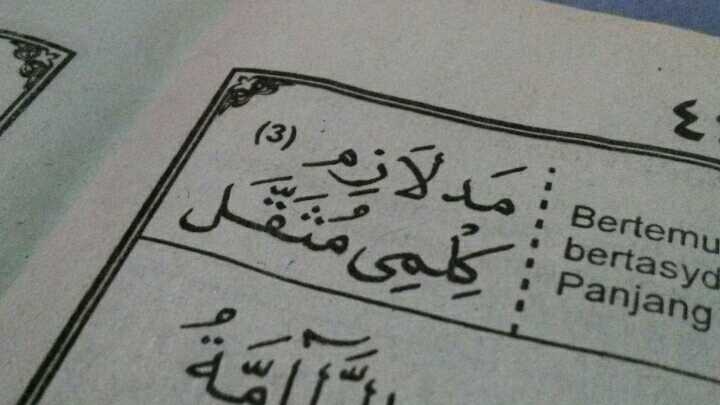 (3) مَد لَازِمِ
كِلْمِى مُثَقَّل
Bertemu
bertasyd
Panjang